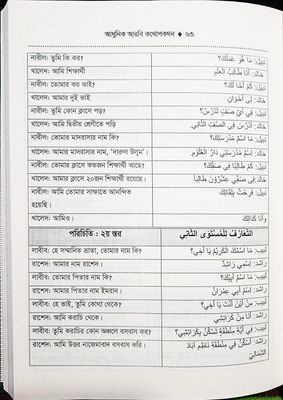 আধুনিক আরবি কথোপকথন ♦ ৬৩
নাবীল: তুমি কি কর? نبيل: مَا هُوَ عَمَلُكَ؟
খালেদ: আমি শিক্ষার্থী خالد: أَنَا طَالِبُ الْعِلْمِ
নাবীল: তোমার কয় ভাই? نبيل: كَمْ أَخًا لَكَ؟
খালেদ: আমার দুই ভাই خالد: لِي أَخَوَانِ
নাবীল: তুমি কোন ক্লাসে পড়? نبيل: فِي أَيِّ صَفٍّ تَدْرُسُ؟
খালেদ: আমি দ্বিতীয় শ্রেণীতে পড়ি خالد: أَدْرُسُ فِي الصَّفِّ الثَّانِي.
নাবীল: তোমার মাদরাসার নাম কি? نبيل: مَا اسْمُ مَدْرَسَتِكَ؟
খালেদ: আমার মাদরাসার নাম, 'দারুল উলূম'। خالد: اِسْمُ مَدْرَسَتِي دَارُ الْعُلُوْمِ.
নাবীল: তোমার ক্লাসে কতজন শিক্ষার্থী আছে? نبيل: كَمْ طَالِبًا فِي صَفِّكَ؟
খালেদ: আমার ক্লাসে ২০জন শিক্ষার্থী রয়েছে। خالد: فِي صَفِّي عِشْرُوْنَ طَالِبًا
নাবীল: আমি তোমার সাক্ষাতে আনন্দিত نبيل: فَرِحْتُ بِلِقَائِكَ
হয়েছি।
খালেদ: আমিও। وَأَنَا كَذَالِكَ
পরিচিতি : ২য় স্তর التَّعَارُفُ لِلْمُسْتَوَى الثَّانِي
লাবীব: হে সম্মানিত ভ্রাতা, তোমার নাম কি? لبيب: مَا اسْمُكَ الْكَرِيْمُ يَا أَخِي؟
রাশেদ: আমার নাম রাশেদ। راشد: اِسْمِي رَاشِدٌ
লাবীব: তোমার পিতার নাম কি? لبيب: مَا اسْمُ أَبِيْكَ؟
রাশেদ: আমার পিতার নাম ইমরান। راشد: اِسْمُ أَبِي عِمْرَانُ
লাবীব: হে ভাই, তুমি কোথা থেকে? لبيب: مِنْ أَيْنَ أَنْتَ يَا أَخِي؟
রাশেদ: আমি করাচি থেকে। راشد: أَنَا مِنْ كَرَاتْشِي
লাবীব: তুমি করাচির কোন অঞ্চলে বসবাস কর? لبيب: فِي أَيَّةِ مِنْطَقَةٍ تَسْكُنُ بِكَرَاتْشِي؟
রাশেদ: আমি উত্তর নাজেমাবাদ বসবাস করি। راشد: أَسْكُنُ فِي مِنْطَقَةِ نَاظِم آبَاد
الشِّمَالِيِّ